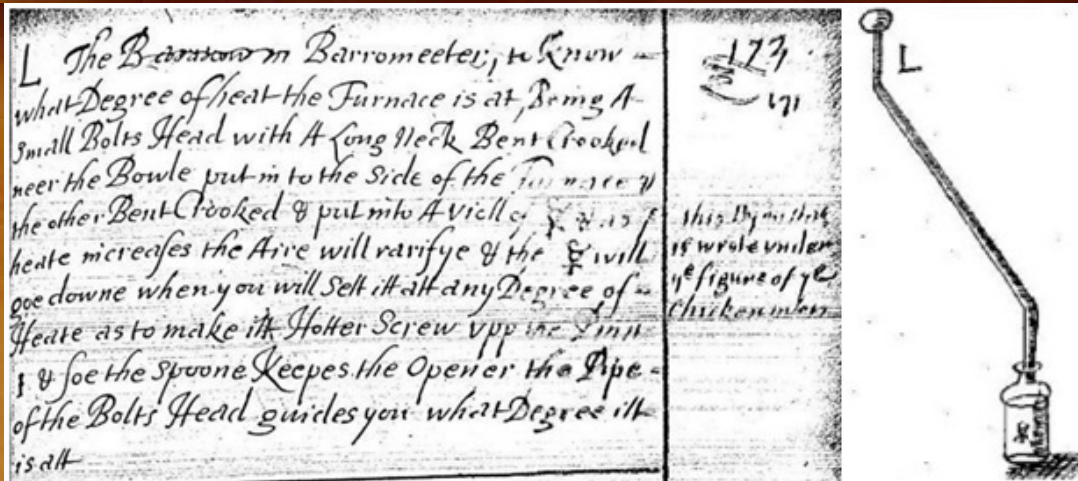 L The Barrometeer, to Know
what Degree of heat the Furnace is at, Being A
Small Bolts Head with A Long Neck Bent Crooked
neer the Bowle put in to the Side of the Furnace &
the other Bent Crooked & put into A Viell of ☿ & as
heate increases the Aire will rarifye & the ☿ will
goe downe when you will Sett itt att any Degree of
Heate as to make itt Hotter Screw upp the
I & soe the Spoone Keepes the Opener the Pipe
of the Bolts Head guides you what Degree itt
is att
173
171
this
is wrote under
ye figure of ye
Chicken
L
☿